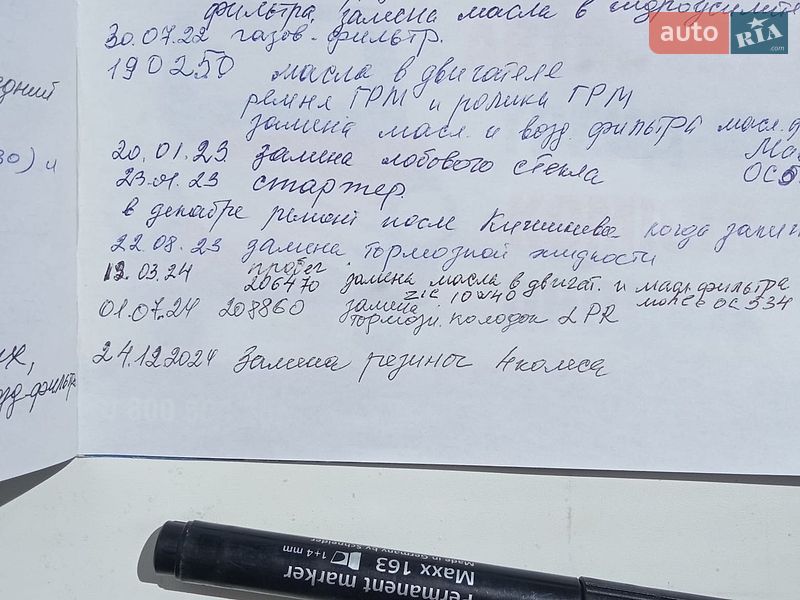 фильтра, замена масла в гидроусилит
30.07.22 газов. фильтр.
190250 масла в двигателе
ремня ГРМ и ролика ГРМ
замена масл. и возд. фильтра масл. ф
20.01.23 замена лобового стекла
23.01.23 стартер.
в декабре ремонт после Кишинева когда
22.08.23 замена тормозной жидкости
12.03.24 пробег 206470 замена масла в двигат. и масл. фильтра
ZIC 10W40 OC 534
01.07.24 208860 замена тормозн. колодок LPR
24.12.2024 Замена резины 4 колеса
задний
30) и
их,
возд. фильтр
Ма
ОС5
auto RIA .com
Permanent marker
Maxx 163 1+4 mm
Made in Germany by Schneider